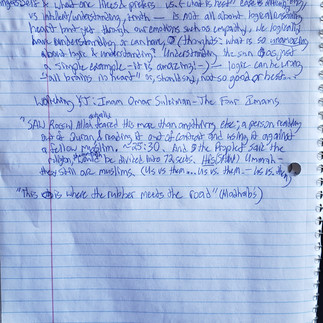 & what one likes & prefers vs. & what is best! ease &
vs intellect/understanding, truth — is not all about logical/
heart that get through our emotions such as empathy, we logically
have understanding or can have, & (thoughts: what is so
about logic & understanding? Understanding the sun does, just
a simple example — it is amazing!—) — logic can be
"all brains no heart" or, should say, not so good or best..
Watching YT: Imam Omar Suleiman - The Four Imams
"SAW Rasul Allah feared this more than anything else; a person reading
out of Quran & reading it out of context and using it against
a fellow muslim. ~25:30. And & the Prophet said the
religion would be divided into 72 sects. His (SAW) Ummah —
they still are muslims. (Us vs them... us vs. them.— us vs. them)
"This is where the rubber meets the road" (Madhabs)